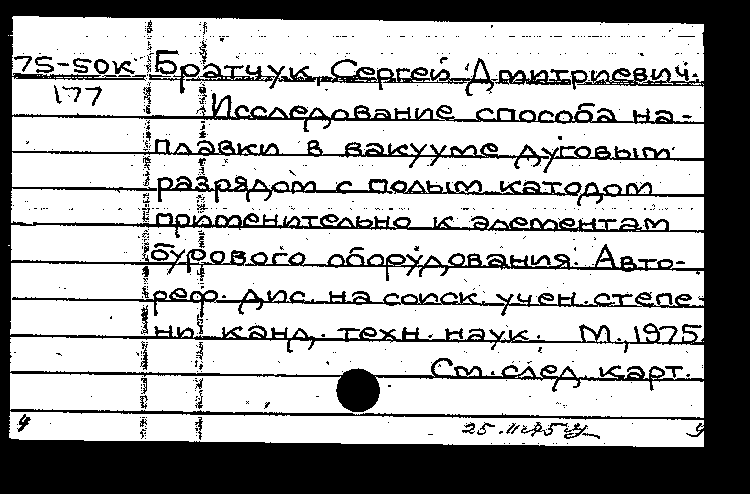 75-50к Братчук, Сергей Дмитриевич.
177
Исследование способа на-
плавки в вакууме дуговым
разрядом с полым катодом
применительно к элементам
бурового оборудования. Авто-
реф. дис. на соиск. учен. степе-
ни канд. техн. наук. М., 1975.
См. след. карт.